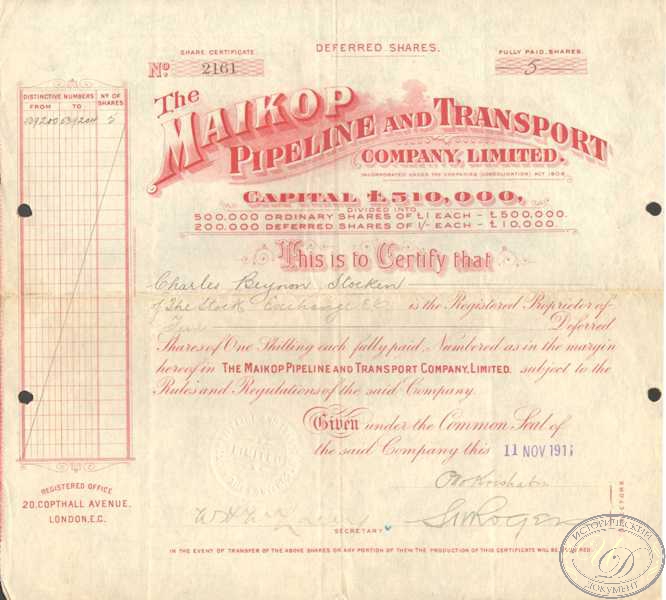 DEFERRED SHARES.
SHARE CERTIFICATE.
No. 2161
FULLY PAID SHARES
5
The
MAIKOP
PIPELINE AND TRANSPORT
COMPANY, LIMITED.
INCORPORATED UNDER THE COMPANIES (CONSOLIDATION) ACT 1908.
CAPITAL £510,000,
DIVIDED INTO
500,000 ORDINARY SHARES OF £1 EACH – £500,000.
200,000 DEFERRED SHARES OF 1/- EACH – £10,000.
DISTINCTIVE NUMBERS
FROM TO
No OF SHARES
5
This is to Certify that
Charles Beynon Stocken
of The Stock Exchange E.C. is the Registered Proprietor of
Five Deferred
Shares of One Shilling each fully paid, Numbered as in the margin
hereof in THE MAIKOP PIPELINE AND TRANSPORT COMPANY, LIMITED. subject to the
Rules and Regulations of the said Company.
Given under the Common Seal of
the said Company this 11 NOV 1911
REGISTERED OFFICE
20, COPTHALL AVENUE,
LONDON, E.C.
DIRECTORS.
SECRETARY
IN THE EVENT OF TRANSFER OF THE ABOVE SHARES OR ANY PORTION OF THEM THE PRODUCTION OF THIS CERTIFICATE WILL BE REQUIRED
ИСТОРИЧЕСКИЙ
Д
ДОКУМЕНТ